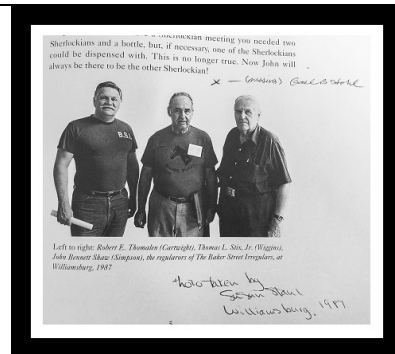 a Sherlockian meeting you needed two
Sherlockians and a bottle, but, if necessary, one of the Sherlockians
could be dispensed with. This is no longer true. Now John will
always be there to be the other Sherlockian!
x —
B.S.I.
Left to right: Robert E. Thomalen (Cartwright), Thomas L. Stix, Jr. (Wiggins),
John Bennett Shaw (Simpson), the regularors of The Baker Street Irregulars, at
Williamsburg, 1987
Photo taken by
Susan Stahl
Williamsburg, 1987